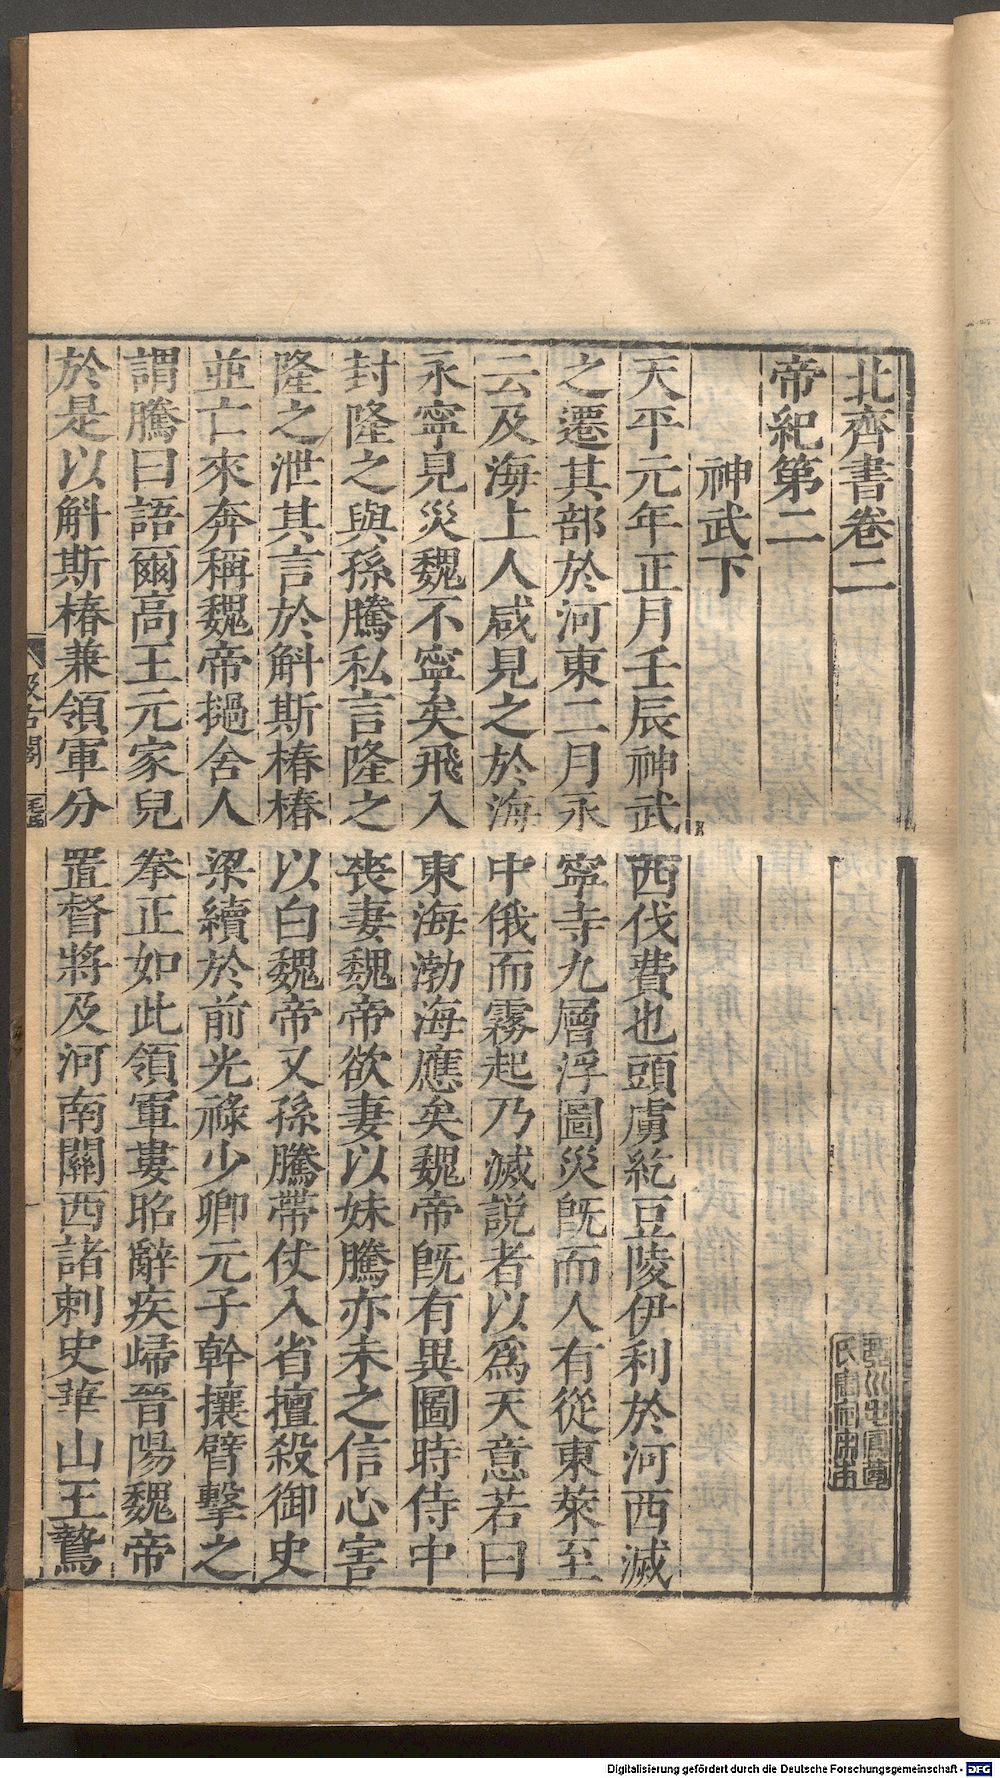 北齊書卷二
帝紀第二
神武下
天平元年正月壬辰神武西伐費也頭虜紇豆陵伊利於河西滅
之遷其部於河東二月永寧寺九層浮圖災旣而人有從東萊至
云及海上人咸見之於海中俄而霧起乃滅説者以爲天意若曰
永寧見災魏不寧矣飛入東海渤海應矣魏帝旣有異圖時侍中
封隆之與孫騰私言隆之喪妻魏帝欲妻以妹騰亦未之信心害
隆之泄其言於斛斯椿椿以白魏帝又孫騰帶仗入省擅殺御史
並亡來奔稱魏帝撾舍人梁續於前光祿少卿元子幹攘臂擊之
謂騰曰語爾高王元家兒拳正如此領軍婁昭辭疾歸晉陽魏帝
於是以斛斯椿兼領軍分置督將及河南關西諸刺史華山王鷙
汲古閣
Digitalisierung gefördert durch die Deutsche Forschungsgemeinschaft - DFG